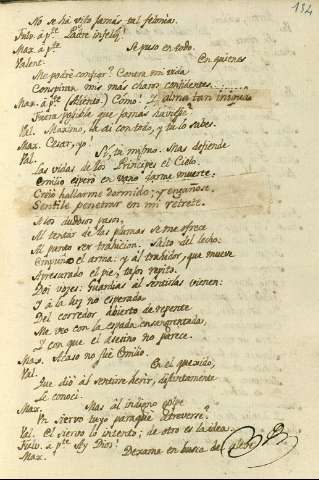 134
No se há visto jamás tal felonia.
Fulv. á pte. Padre infeliz!
Max. á pte. Se puso en todo.
Valent. En quienes
Me podré confiar? Contra mi vida
Conspiran mis más charos confidentes.......
Max. á pte. Aliento.) Cómo! Y alma tan iniqua
Fuera posible que jamás havrese?
Val. Maximo, la di con todo, y tu lo sabes.
Max. Cesar, yo!
Val. Sí, tu mismo. Mas defiende
las vidas de los Principes el Cielo.
Emilio esperó en vano darme muerte:
Creió hallarme dormido; y engañose.
Sentile penetrar en mi retrete.
A los dudosos pasos,
Al tentar de las plumas se me ofrece
Al punto ser trahicion. Salto del lecho:
Empuño el arma: y al trahidor, que mueve
Apresurado el pie, repito.
Doi vozes: Guardias al sentirlas vienen:
I á la luz no esperada
Del corredor, abierto de repente
Me veo con la espada ensangrentada,
I con que el asesino no parece.
Max. Acaso no fué Emilio.
Val. En el quexido,
Que dió al sentirse herir, distintamente
Le conoci.
Max. Mas al indigno golpe
Un siervo tuyo paraqué atreverse?
Val. El siervo lo intentó; de otro es la idea.
Fulv. á pte. Ay Dios!
Max. Dexame en busca de